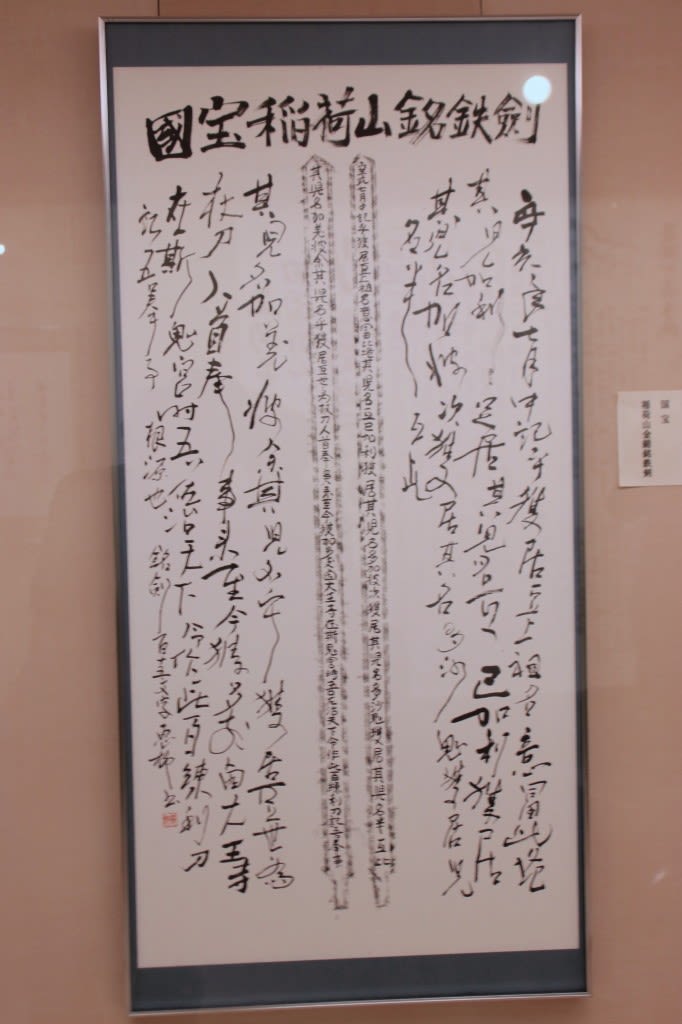 國宝稲荷山銘鉄劍
辛亥年七月中記乎獲居臣上祖名意富比垝
其児加利足居其児名弖已加利獲居
其児名加披次獲居其名多沙鬼獲居児
名半弖比
辛亥年七月中記乎獲居臣上祖名意富比垝其児名弖已加利獲居其児名多加披次獲居其児名多沙鬼獲居其児名半弖比
其児名加差披余其児名乎獲居臣世為杖刀人首奉事来至今獲加多支鹵大王寺在斯鬼宮時吾左治天下令作此百練利刀記吾奉事
其児名加差披余其児名乎獲居臣世為
杖刀人首奉事来至今獲加多支鹵大王寺
在斯鬼宮時吾佐治天下令作此百練利刀
記吾奉事根源也 銘劍百十五文字
国宝
稲荷山金錯銘鉄剣